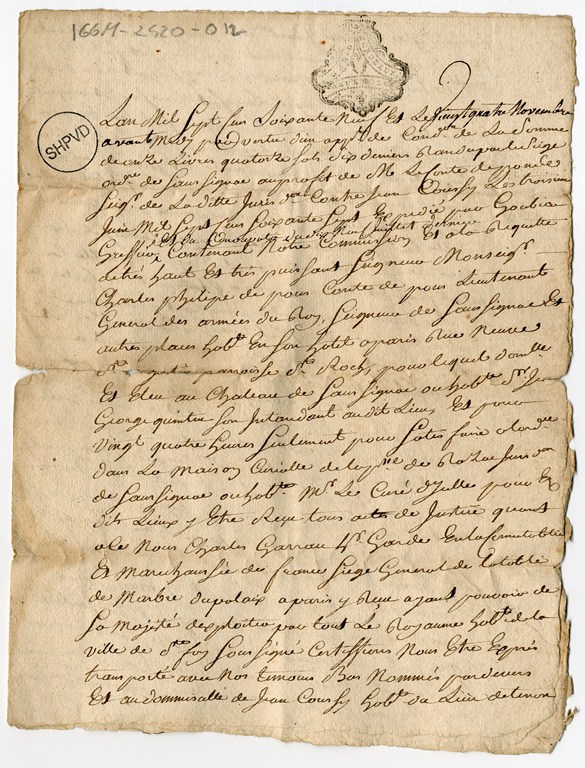 166M-2520-012
SHPVD
Lan Mil Sept Cens Soixante Neuf Et Le Vingt quatre Novembre
avant Midy par vertu d'un app^t de Cond^on de La Somme
de onze Livres quatorze Sols dix deniers Randu par le Siege
ord^re de Saussignac au profit de M^r Le Conte de pons
Seig^r de La ditte Juris^on Contre Jean Coussy Le troizieme
Juin Mil Sept Cens Soixante Sept Expedié par
Greffier Contenant Notre Commission Et a la Requette
de trés haut Et tres puissant Seigneur Monseig^r
Charles philipe de pons Conte de pons Lieutenant
General des armées du Roy, Seigneur de Saussignac Et
autres places hab^t En Son hotel a paris Rue Neuve
parroisse S^t Roch, pour lequel domille
Et Eleu au Chateau de Saussignac ou hab^te S^r Jean
George quintin Son Intandant audit Lieu, Et pour
Vingt quatre heures Seulement pour Sates faire a lordre
dans La Maison Curialle de la p^sse de Razac Juris^on
de Saussignac ou hab^te M^r Le Curé d'Icelle pour Es
dits Lieux y Etre Reçu tous actes de Justice quant
a Ce Nous Charles Charrau Garde En la Connetablie
Et Marechaussée de france Siege General de la table
de Marbre du palaix a paris y Reçu ayant pouvoir de
Sa Majesté dexploiter par tout Le Royaume hab^t de la
ville de S^te foy Soussigné Certiffions Nous Etre Exprés
transporté avec Nos temoins Bas Nommés par devers
Et au dommicille de Jean Coussy hab^t du Lieu de